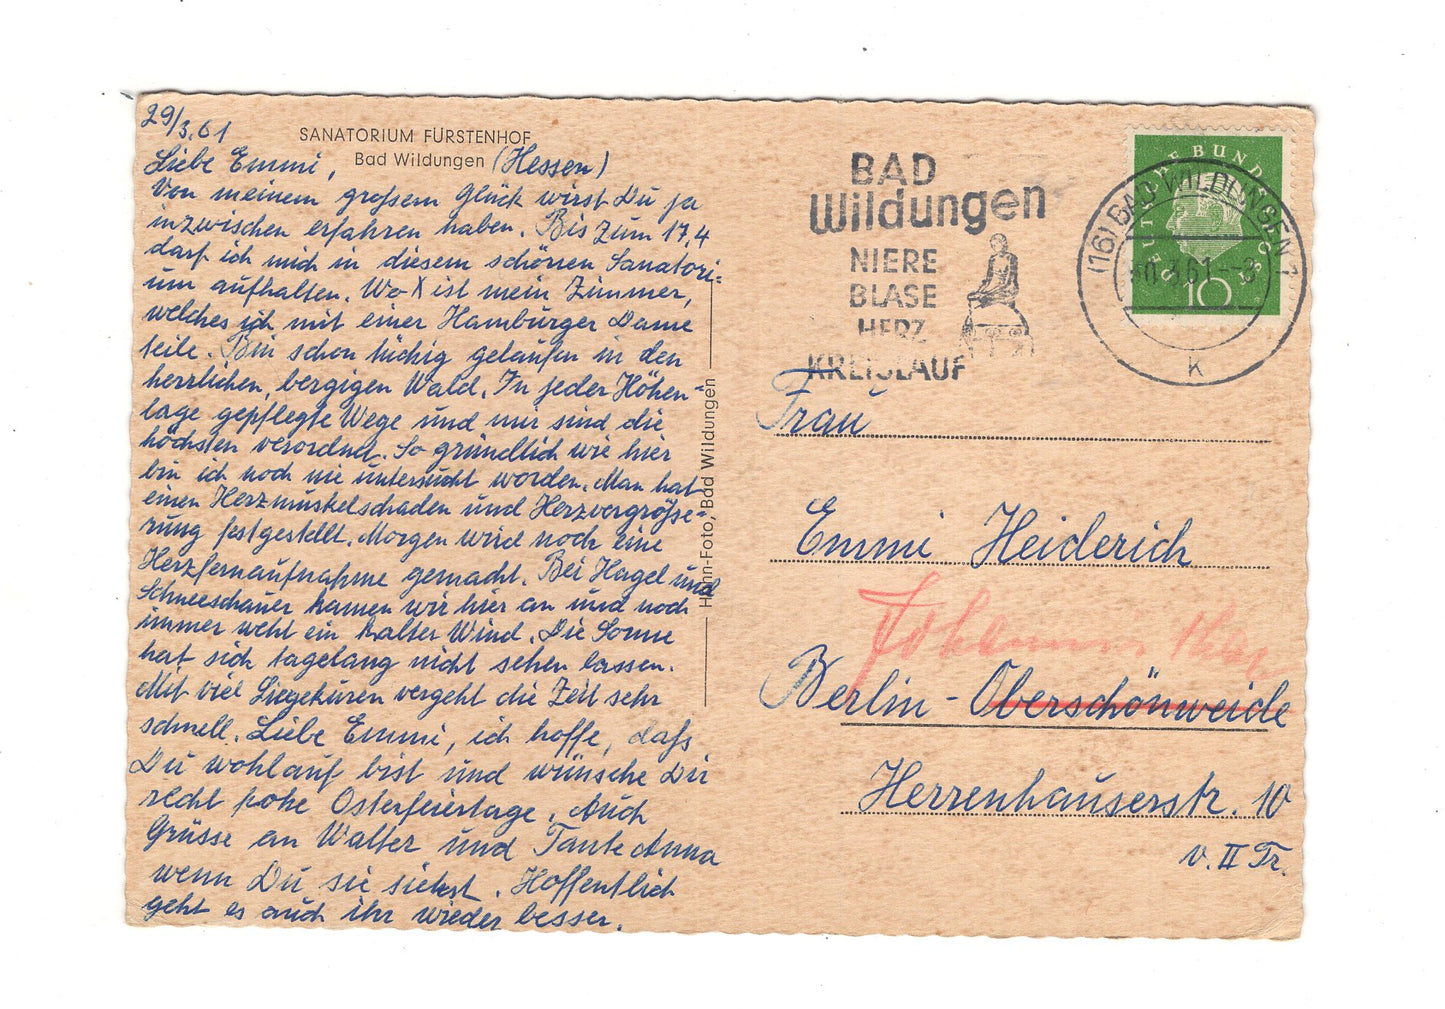 29/3.61
SANATORIUM FÜRSTENHOF
Bad Wildungen (Hessen)
Liebe Emmi,
Von meinem großem Glück wirst Du ja
inzwischen erfahren haben. Bis zum 17.4
darf ich mich in diesem schönen Sanatori-
um aufhalten. Wo X ist mein Zimmer,
welches ich mit einer Hamburger Dame
teile. Bin schon tüchig gelaufen in den
herrlichen, bergigen Wald. In jeder Höhen-
lage gepflegte Wege und mir sind die
höchsten verordnet. So gründlich wie hier
bin ich noch nie untersucht worden. Man hat
einen Herzmuskelschaden und Herzvergröße-
rung festgestellt. Morgen wird noch eine
Herzfernaufnahme gemacht. Bei Hagel und
Schneeschauer kamen wir hier an und noch
immer weht ein kalter Wind. Die Sonne
hat sich tagelang nicht sehen lassen.
Mit viel Liegekuren vergeht die Zeit sehr
schnell. Liebe Emmi, ich hoffe, daß
Du wohlauf bist und wünsche Dir
recht frohe Osterfeiertage. Auch
Grüsse an Walter und Tante Anna
wenn Du sie siehst. Hoffentlich
geht es auch ihr wieder besser.
Hahn-Foto, Bad Wildungen
BAD
Wildungen
NIERE
BLASE
HERZ
KREISLAUF
DEUTSCHE BUNDESPOST
10
(16) BAD WILDUNGEN 1
3.61
K
Frau
Emmi Heiderich
Johannis
Berlin-Oberschönweide
Herrenhauserstr. 10
v. II Tr.